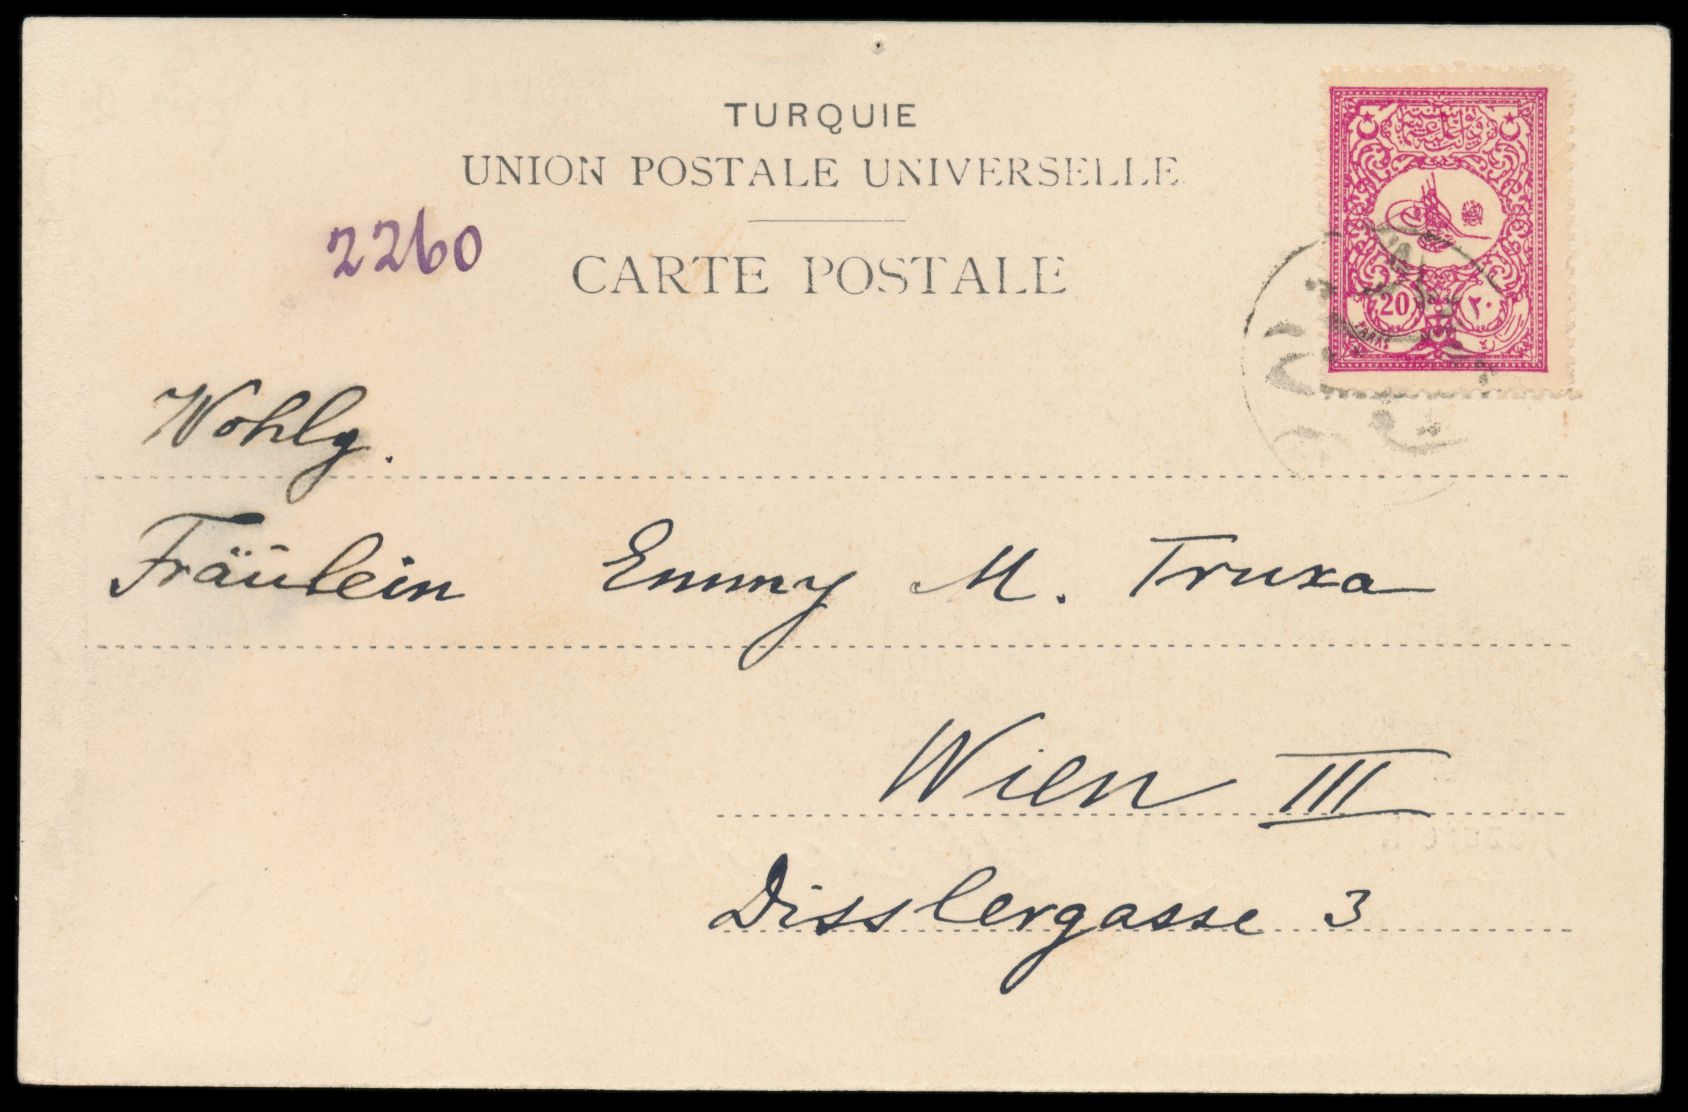 TURQUIE
UNION POSTALE UNIVERSELLE
2260
CARTE POSTALE
20 ٢٠
Wohlg.
Fräulein Emmy M. Truxa
Wien III
Disslergasse 3